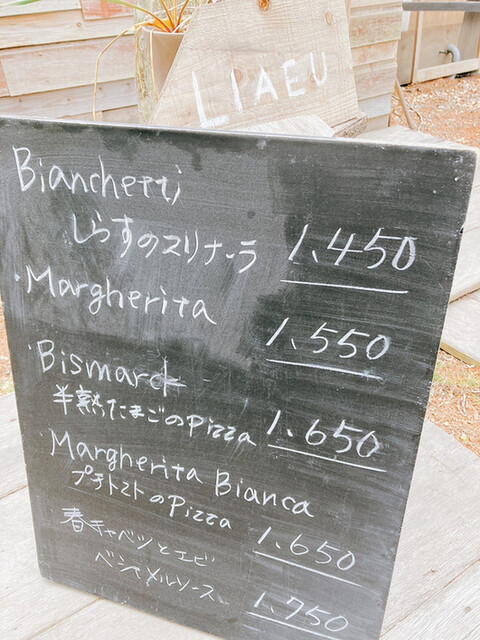 LIAEU
Bianchetti
しらすのマリナーラ 1,450
・Margherita
1,550
・Bismarck
半熟たまごのPizza 1,650
・Margherita Bianca
プチトマトのPizza
1,650
春キャベツとエビ
ベシャメルソース 1,750